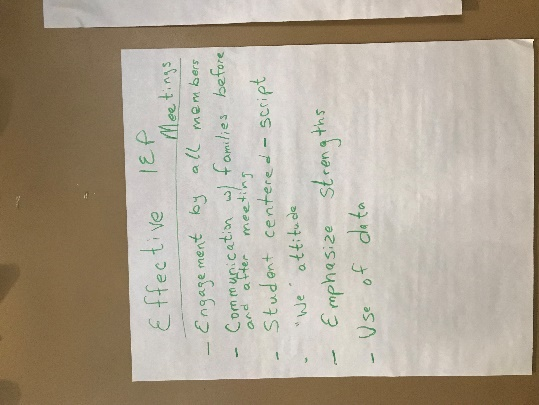 Effective IEP
Meetings
- Engagement by all members
- Communication w/ families before
and after meeting
- Student centered - script
- "We" attitude
- Emphasize strengths
- Use of data